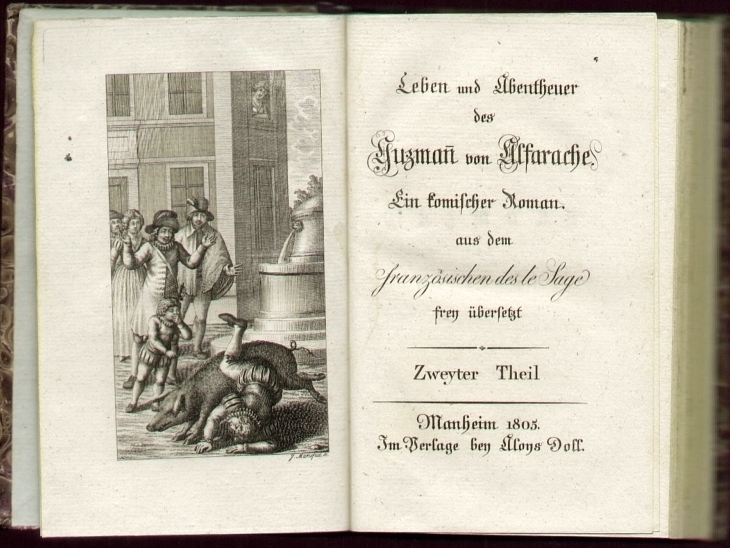 Leben und Abentheuer
des
Guzmañ von Alfarache
Ein komischer Roman.
aus dem
französischen des le Sage
frey übersetzt
Zweyter Theil
Manheim 1805.
Im Verlage bey Aloys Doll.